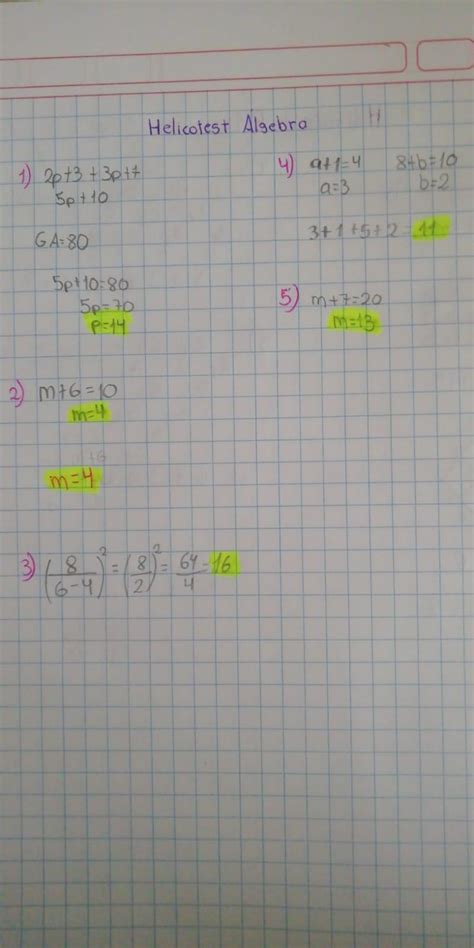 Helicotest Álgebra
1) 2p+3 + 3p+7
5p+10
GA=80
5p+10=80
5p=70
p=14
2) m+6=10
m=4
m=4
3) (8/(6-4))² = (8/2)² = 64/4 = 16
4) a+1=4 8+b=10
a=3 b=2
3+1+5+2=11
5) m+7=20
m=13